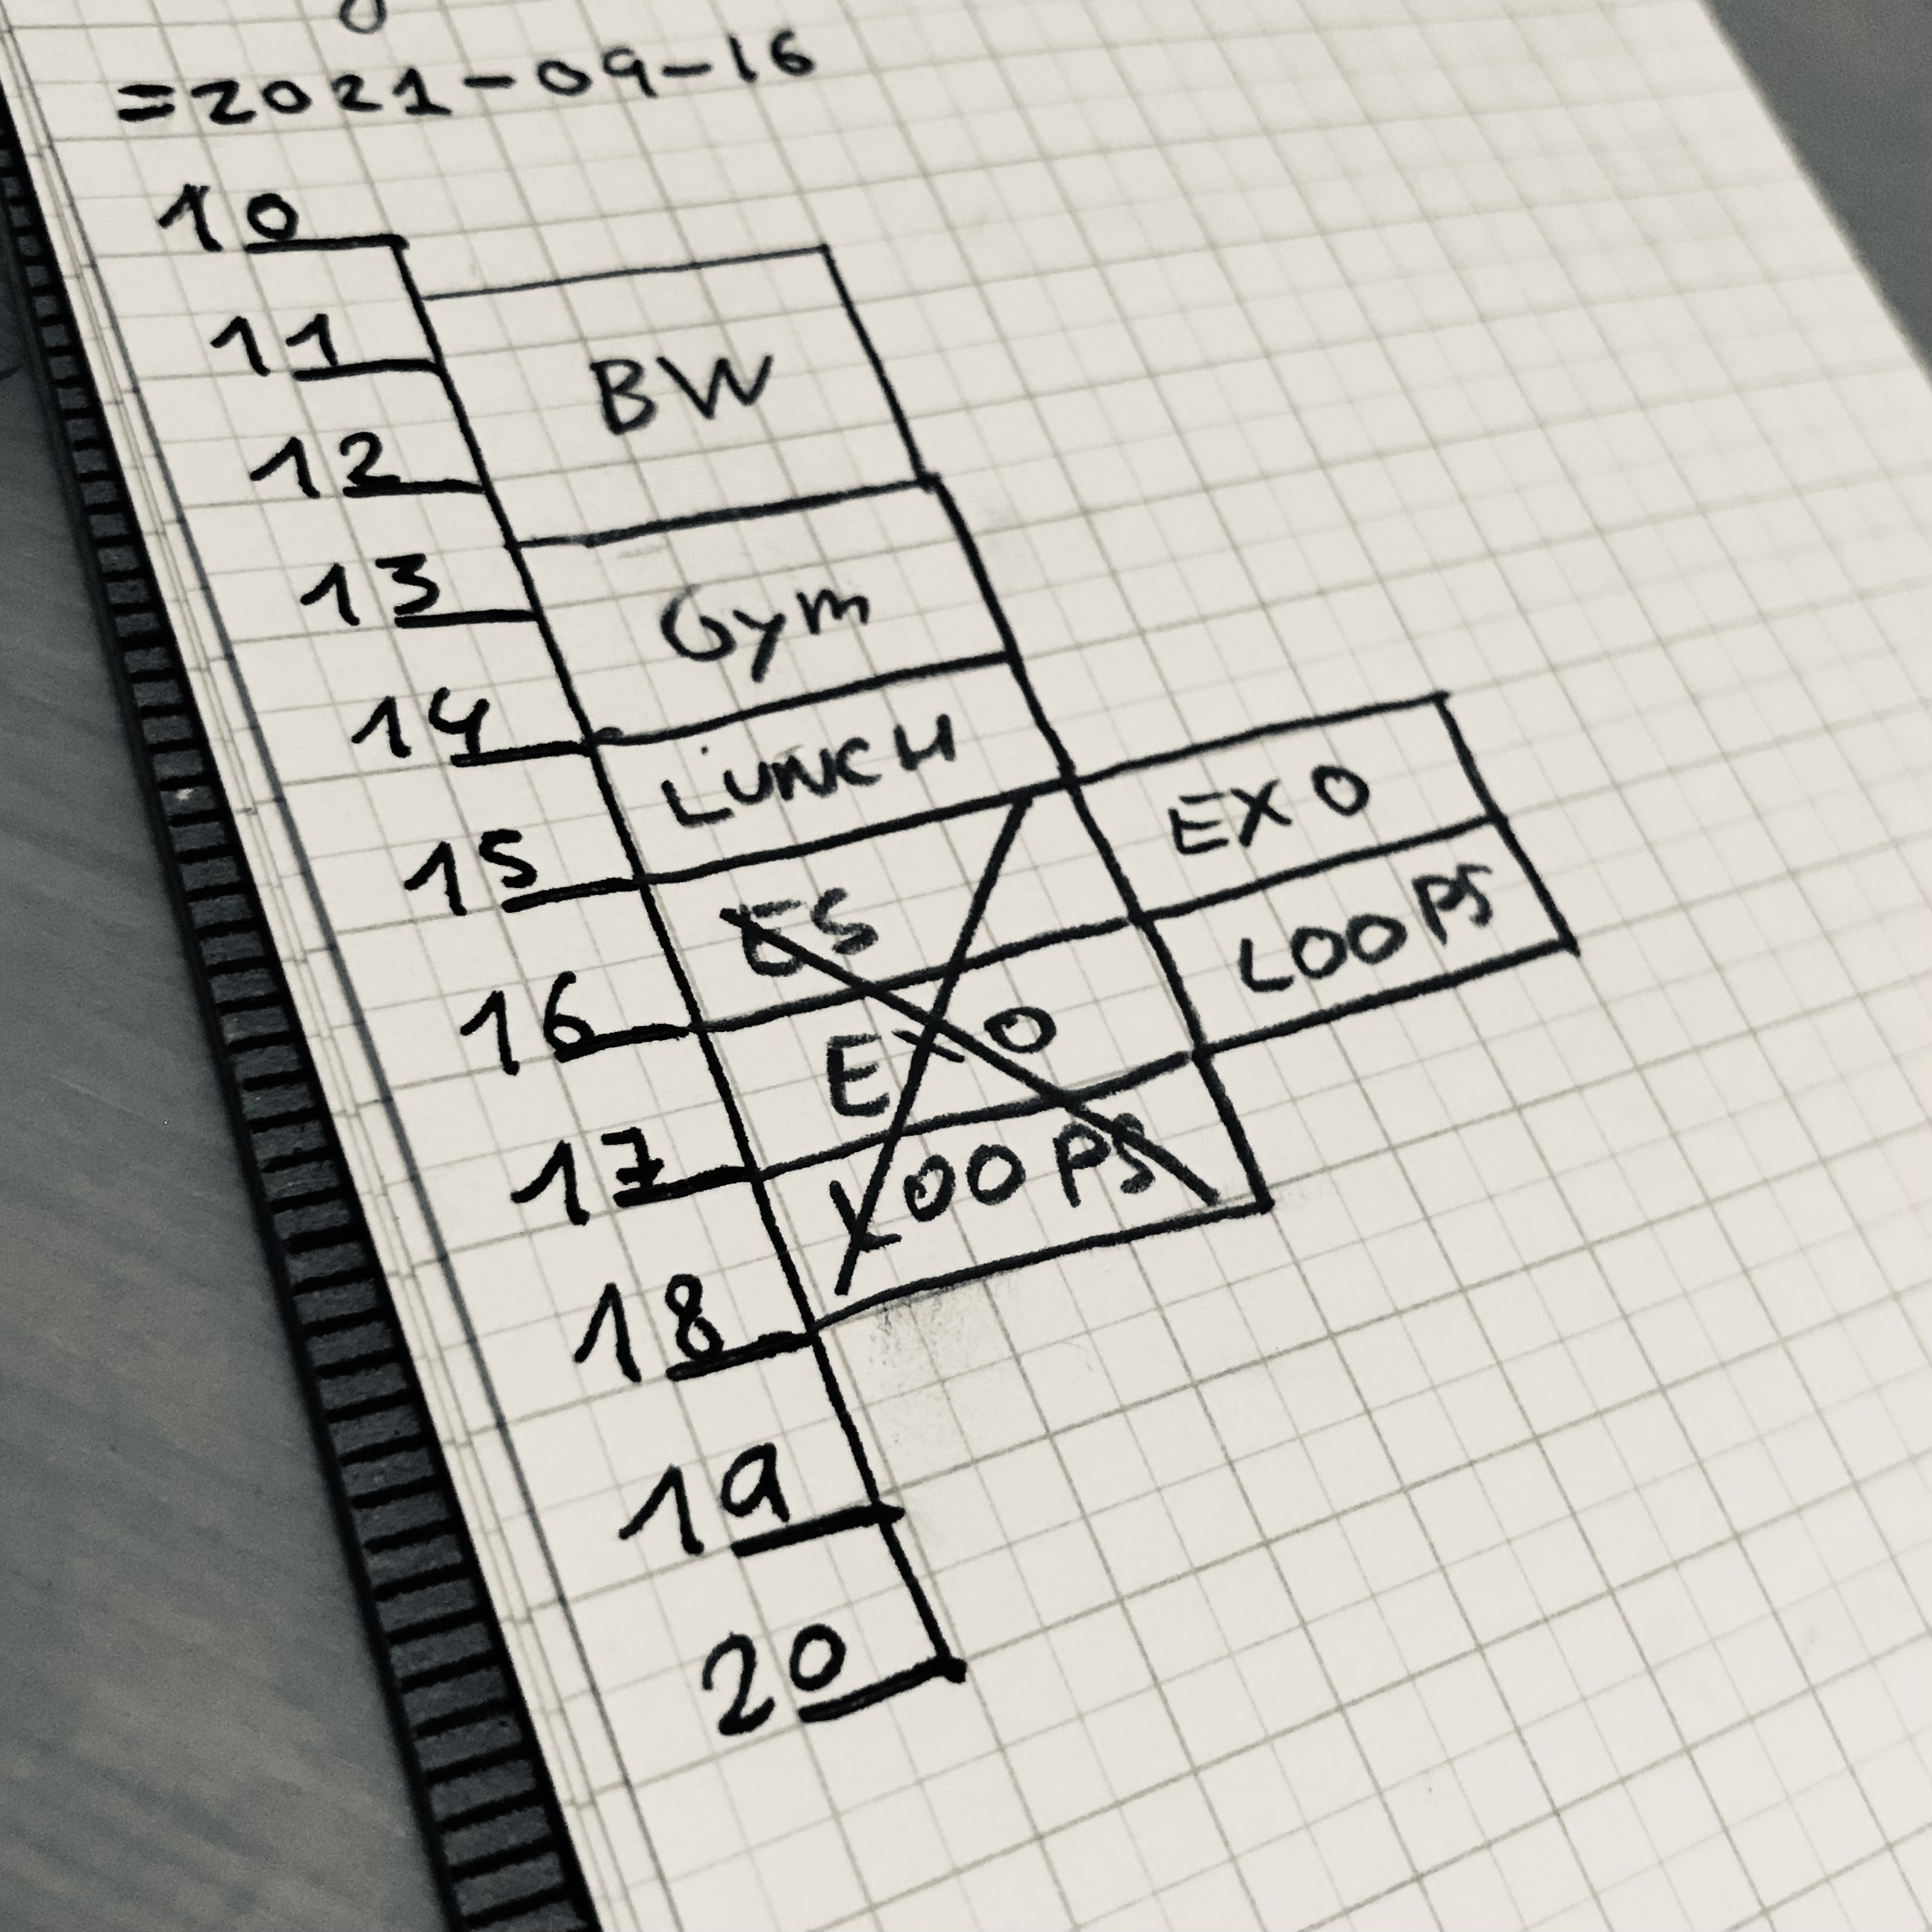 =2021-09-16
10
11
BW
12
13
Gym
14
LUNCH
EXO
15
ES
LOOPS
16
EXO
17
LOOPS
18
19
20